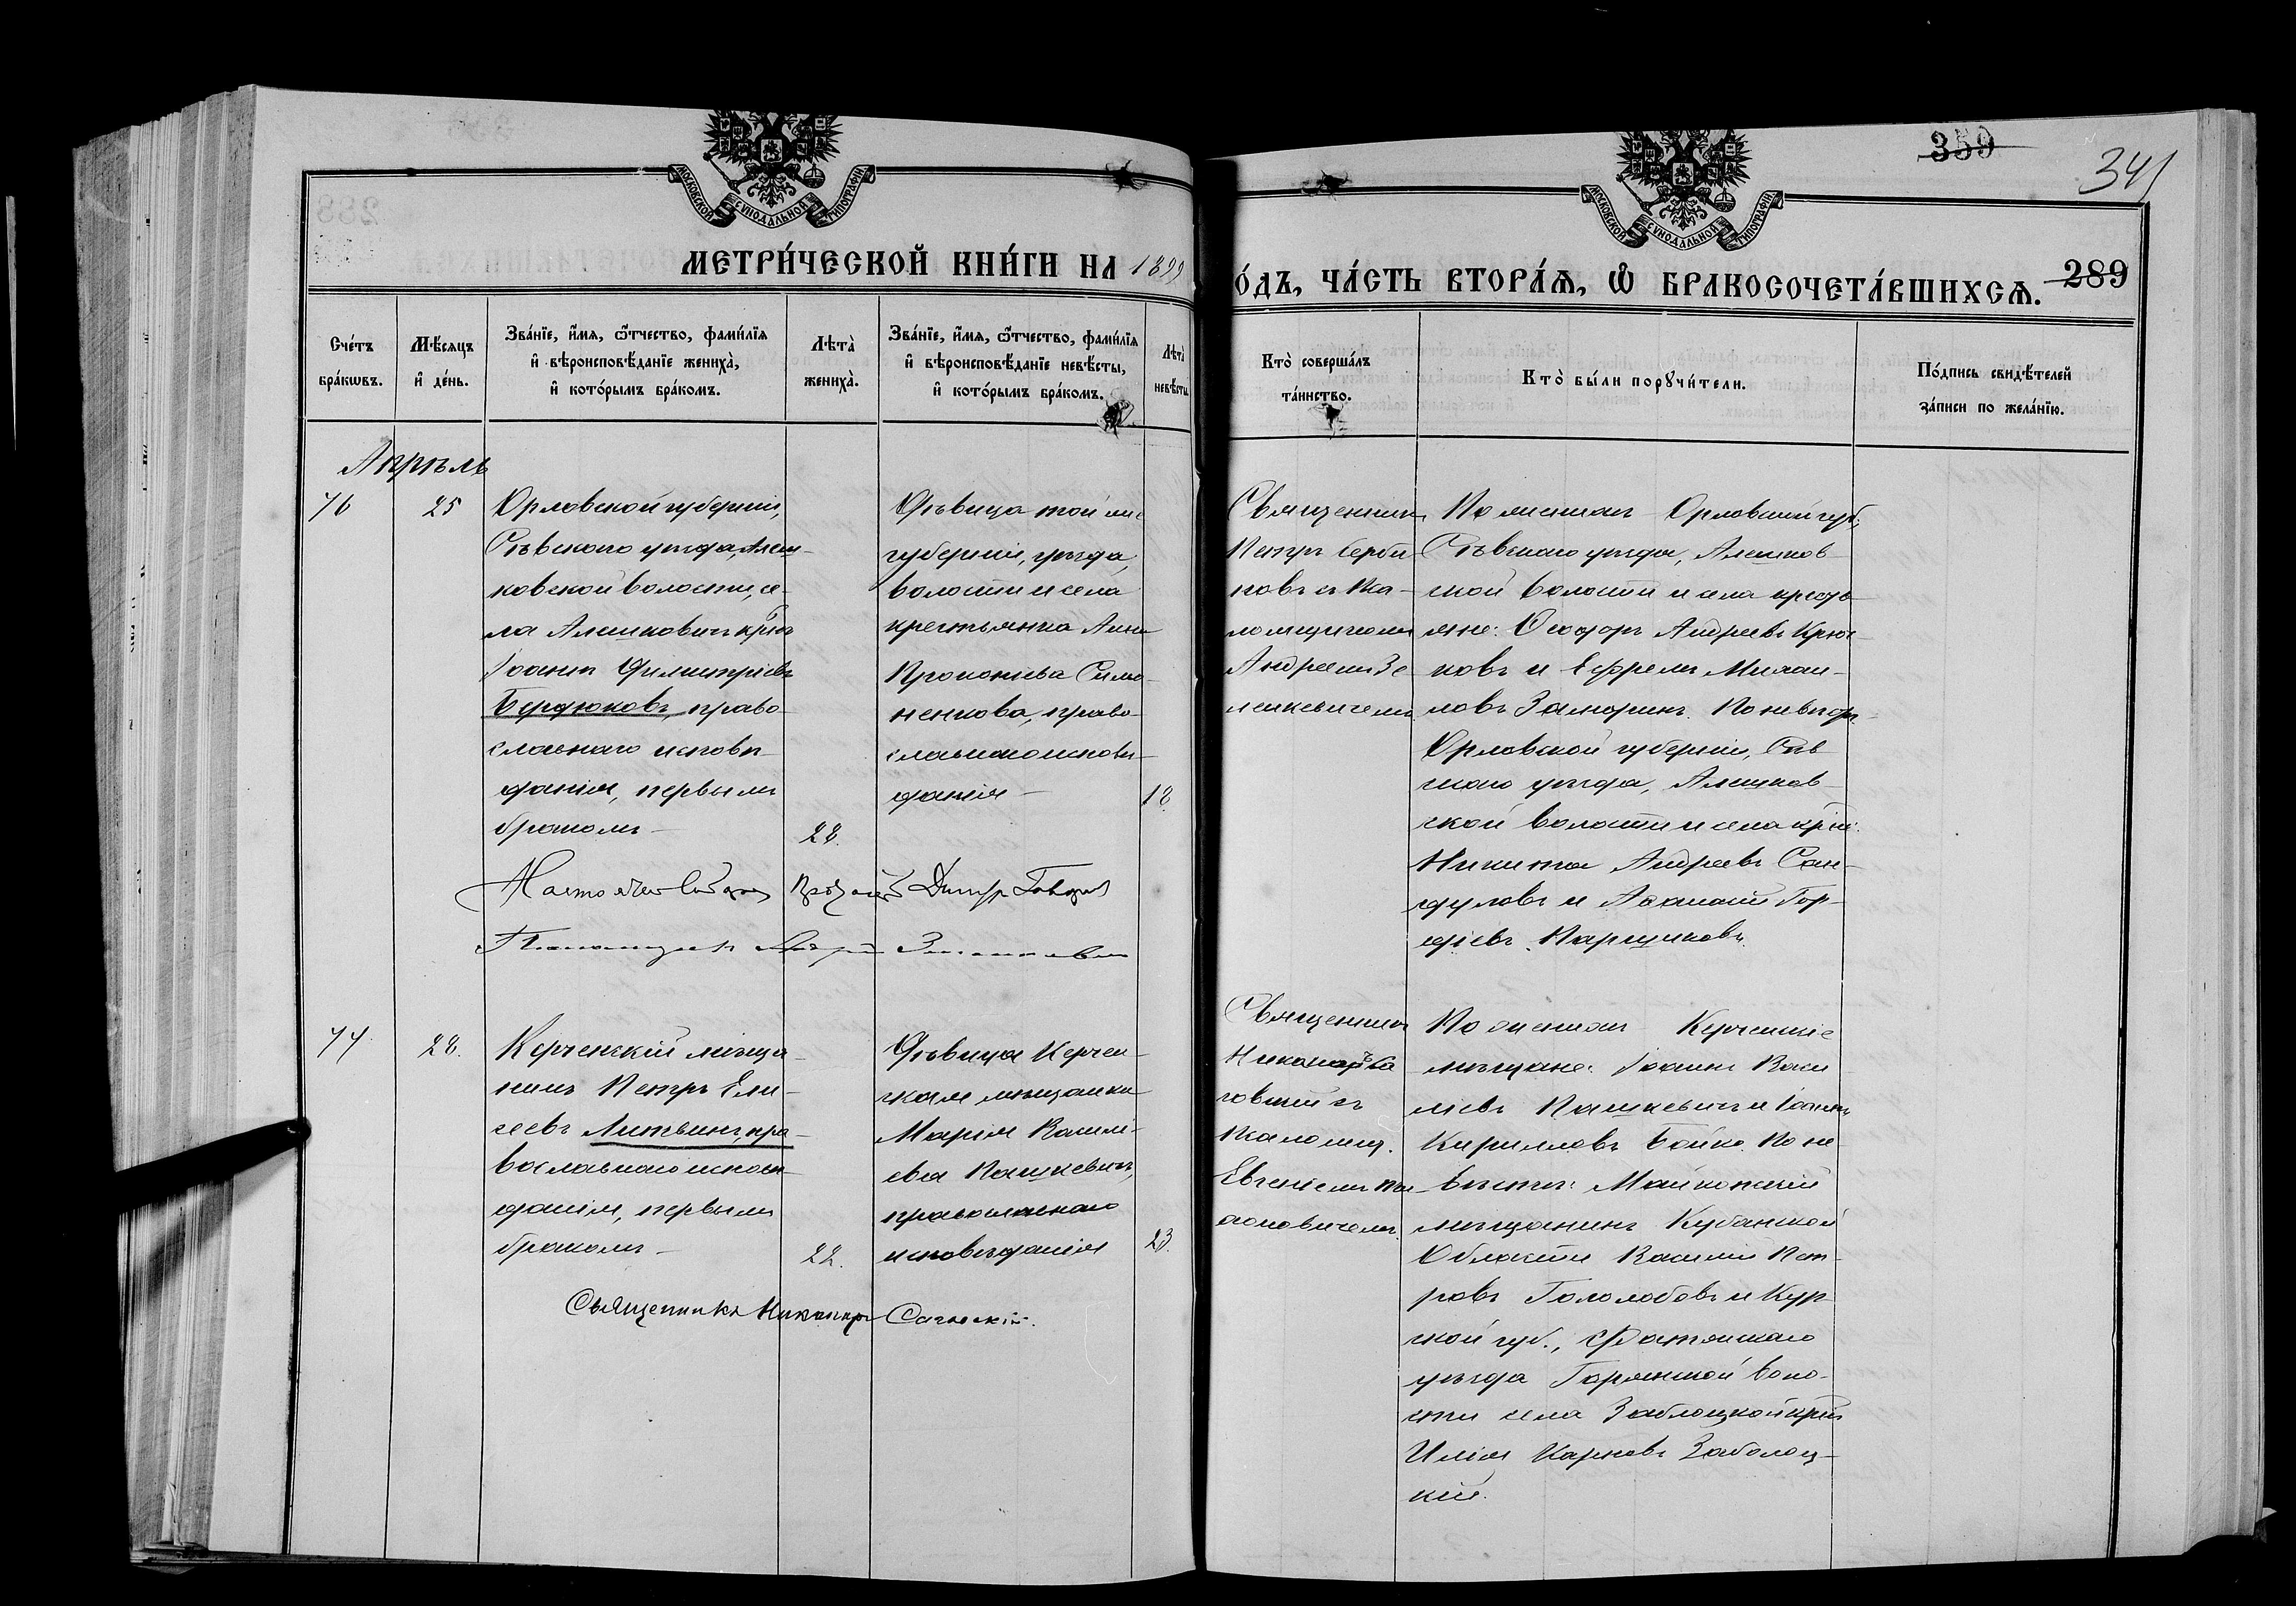 359
341
289
МОСКОВСКОЙ СѴНОДАЛЬНОЙ ТИПОГРАФІИ
МОСКОВСКОЙ СѴНОДАЛЬНОЙ ТИПОГРАФІИ
МЕТРИ́ЧЕСКОЙ КНИ́ГИ НА 1899
О́ДЪ, ЧА́СТЬ ВТОРА́Ѧ, Ѽ БРАКОСОЧЕТА́ВШИХСѦ.
Сче́тъ
бра́кωвъ.
Мѣ́сяцъ
и҆ де́нь.
Зва́нїе, и҆́мя, ѻ҆́тчество, фами́лїя
и҆ вѣроисповѣ́данїе жениха̀,
и҆ кото́рымъ бра́комъ.
Лѣта̀
жениха̀.
Зва́нїе, и҆́мя, ѻ҆́тчество, фами́лїя
и҆ вѣроисповѣ́данїе невѣ́сты,
и҆ кото́рымъ бра́комъ.
Лѣта̀
невѣ́сты
Кто̀ соверша́лъ
та́инство.
Кто̀ бы́ли порꙋчи́тели.
По́дпись свидѣ́телей
за́писи по жела́нїю.
Апрѣль
76
25
Орловской губерніи,
Сѣвскаго уѣзда, Алеш-
ковской волости, се-
ла Алешковичъ кр.
Іоаннъ Димитріевъ
Бердюковъ, право-
славнаго исповѣ-
данія, первымъ
бракомъ –
28.
Дѣвица той же
губерніи, уѣзда,
волости и села
крестьянка Анна
Прокопіева Симо-
ненкова, право-
славнаго исповѣ-
данія –
18.
Священник
Петръ Серби-
новъ съ Пса-
ломщикомъ
Андреемъ Зе-
ленкевичемъ
По женихѣ Орловской губ.,
Сѣвскаго уѣзда, Алешков-
ской волости и села кресть-
яне: Ѳеодоръ Андреевъ Крюч-
ковъ и Ефремъ Михаи-
ловъ Заморинъ. По невѣстѣ
Орловской губерніи, Сѣв-
скаго уѣзда, Алешков-
ской волости и села кр.
Никита Андреевъ Сан-
дуловъ и Аѳанасій Гор-
дѣевъ Паршиковъ.
Псаломщикъ Андрей
77
28.
Керченскій мѣща-
нинъ Петръ Ели-
сеевъ Литвинъ, пра-
вославнаго исповѣ-
данія, первымъ
бракомъ –
22.
Дѣвица Керчен-
ская мѣщанка
Марія Василі-
ева Пашкевичъ,
православнаго
исповѣданія
23.
Священникъ
Никаноръ Са-
говскій съ
Псаломщ.
По женихѣ Керченскіе
мѣщане: Іоаннъ Васи-
ліевъ Пашкевичъ и Іоаннъ
Кирилловъ Бойко. По не-
вѣстѣ: Майкопскій
мѣщанинъ Кубанской
Области Василій Пет-
ровъ Гололобовъ и Кур-
ской губ., Фатежскаго
уѣзда волос-
ти села Заблоцкой кр.
Илія Карповъ Заболоц-
кій.
Священникъ Никаноръ Саговскій.